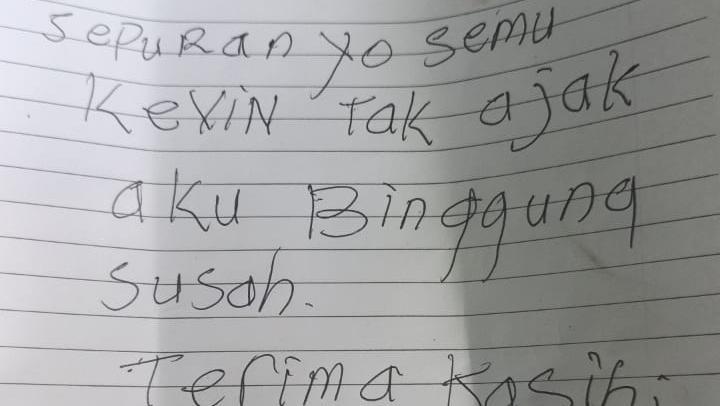 sepuran yo semu
Kevin tak ajak
aku Binggung
susah.
Terima kasih.